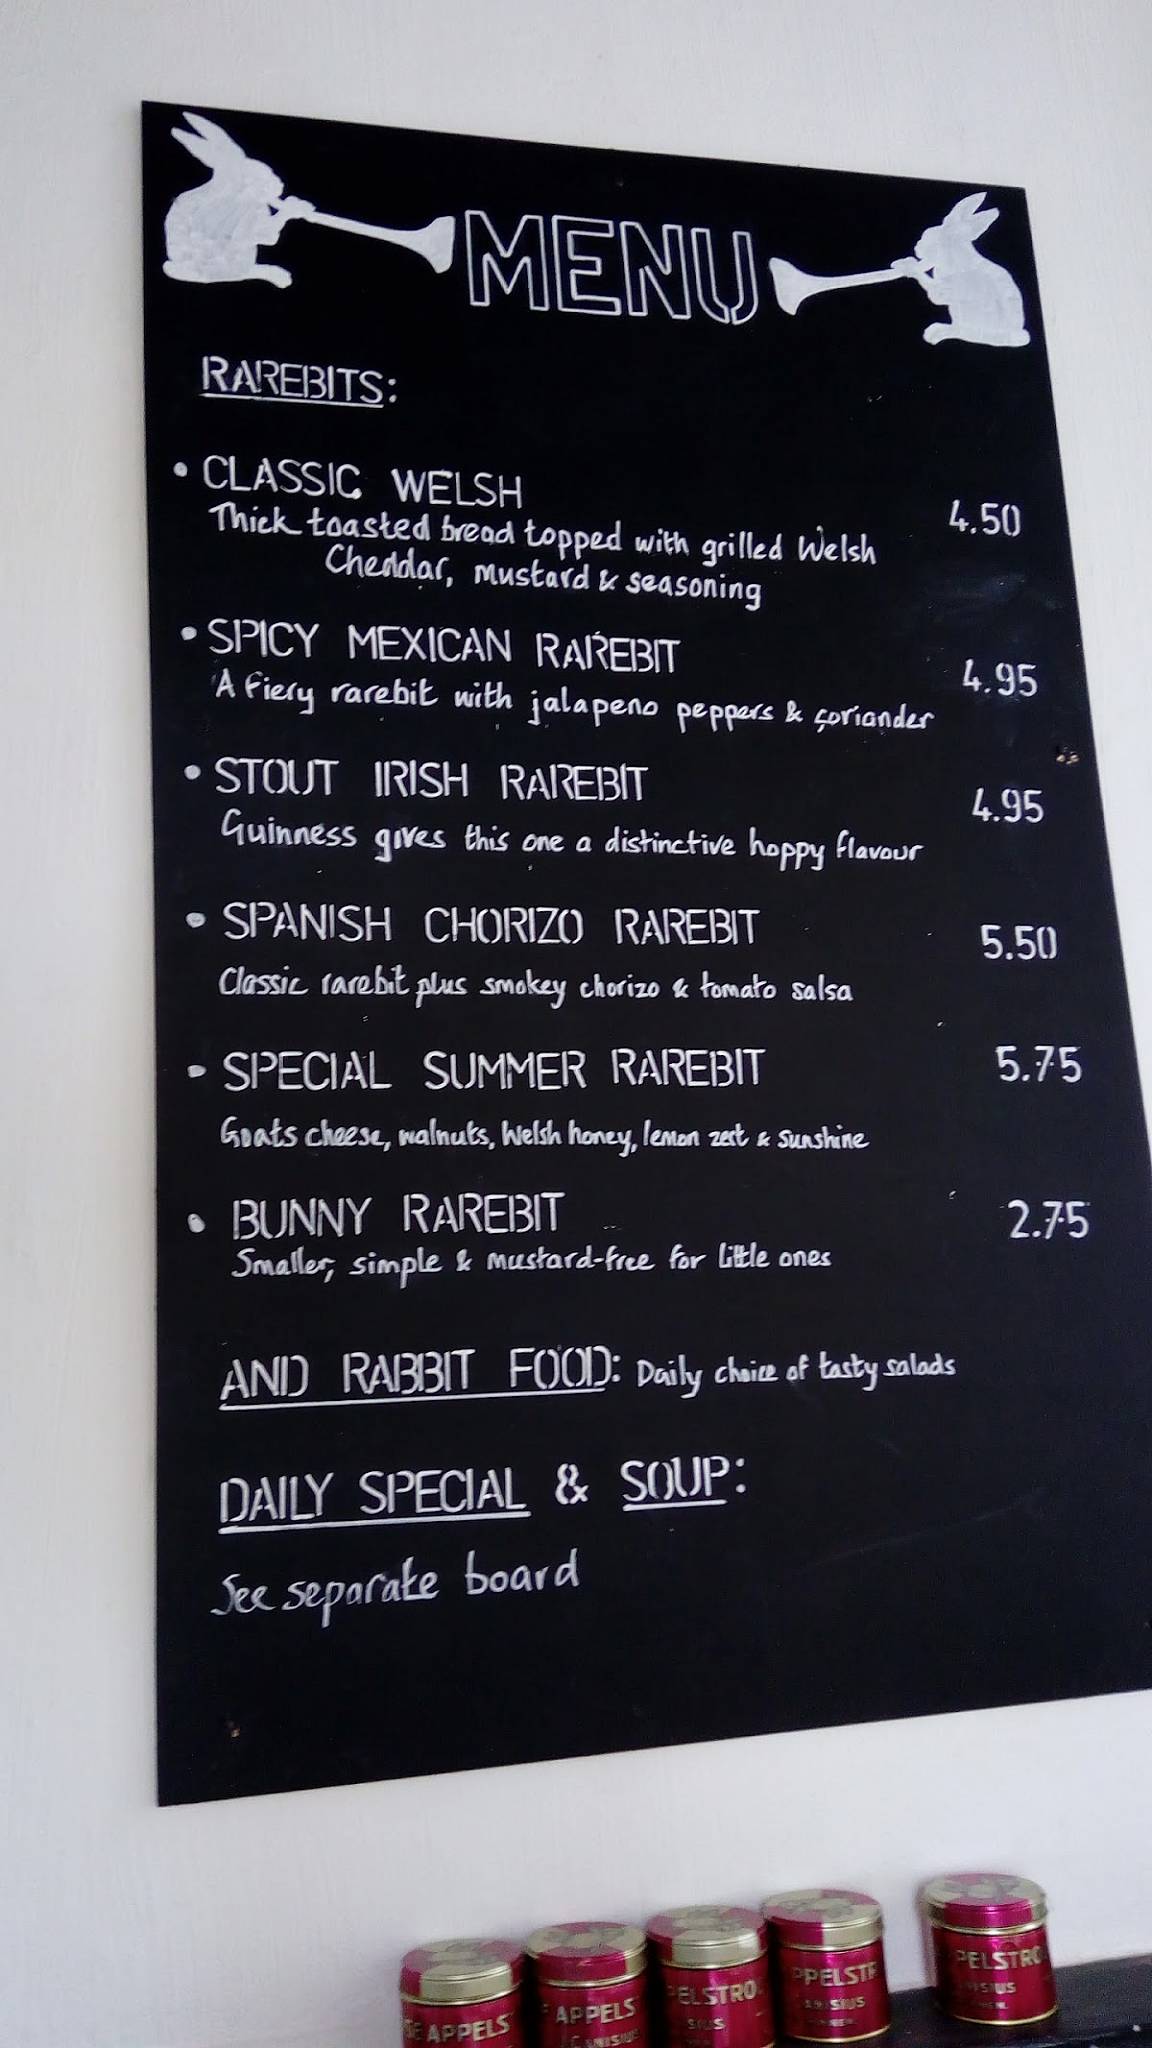 MENU
RAREBITS:
• CLASSIC WELSH 4.50
Thick toasted bread topped with grilled Welsh
Cheddar, mustard & seasoning
• SPICY MEXICAN RAREBIT 4.95
A fiery rarebit with jalapeno peppers & coriander
• STOUT IRISH RAREBIT 4.95
Guinness gives this one a distinctive hoppy flavour
• SPANISH CHORIZO RAREBIT 5.50
Classic rarebit plus smokey chorizo & tomato salsa
• SPECIAL SUMMER RAREBIT 5.75
Goats cheese, walnuts, Welsh honey, lemon zest & sunshine
• BUNNY RAREBIT 2.75
Smaller, simple & mustard-free for little ones
AND RABBIT FOOD: Daily choice of tasty salads
DAILY SPECIAL & SOUP:
See separate board
SE APPELS
E APPELS
PELSTRO
PPELSTR
PPELSTRO